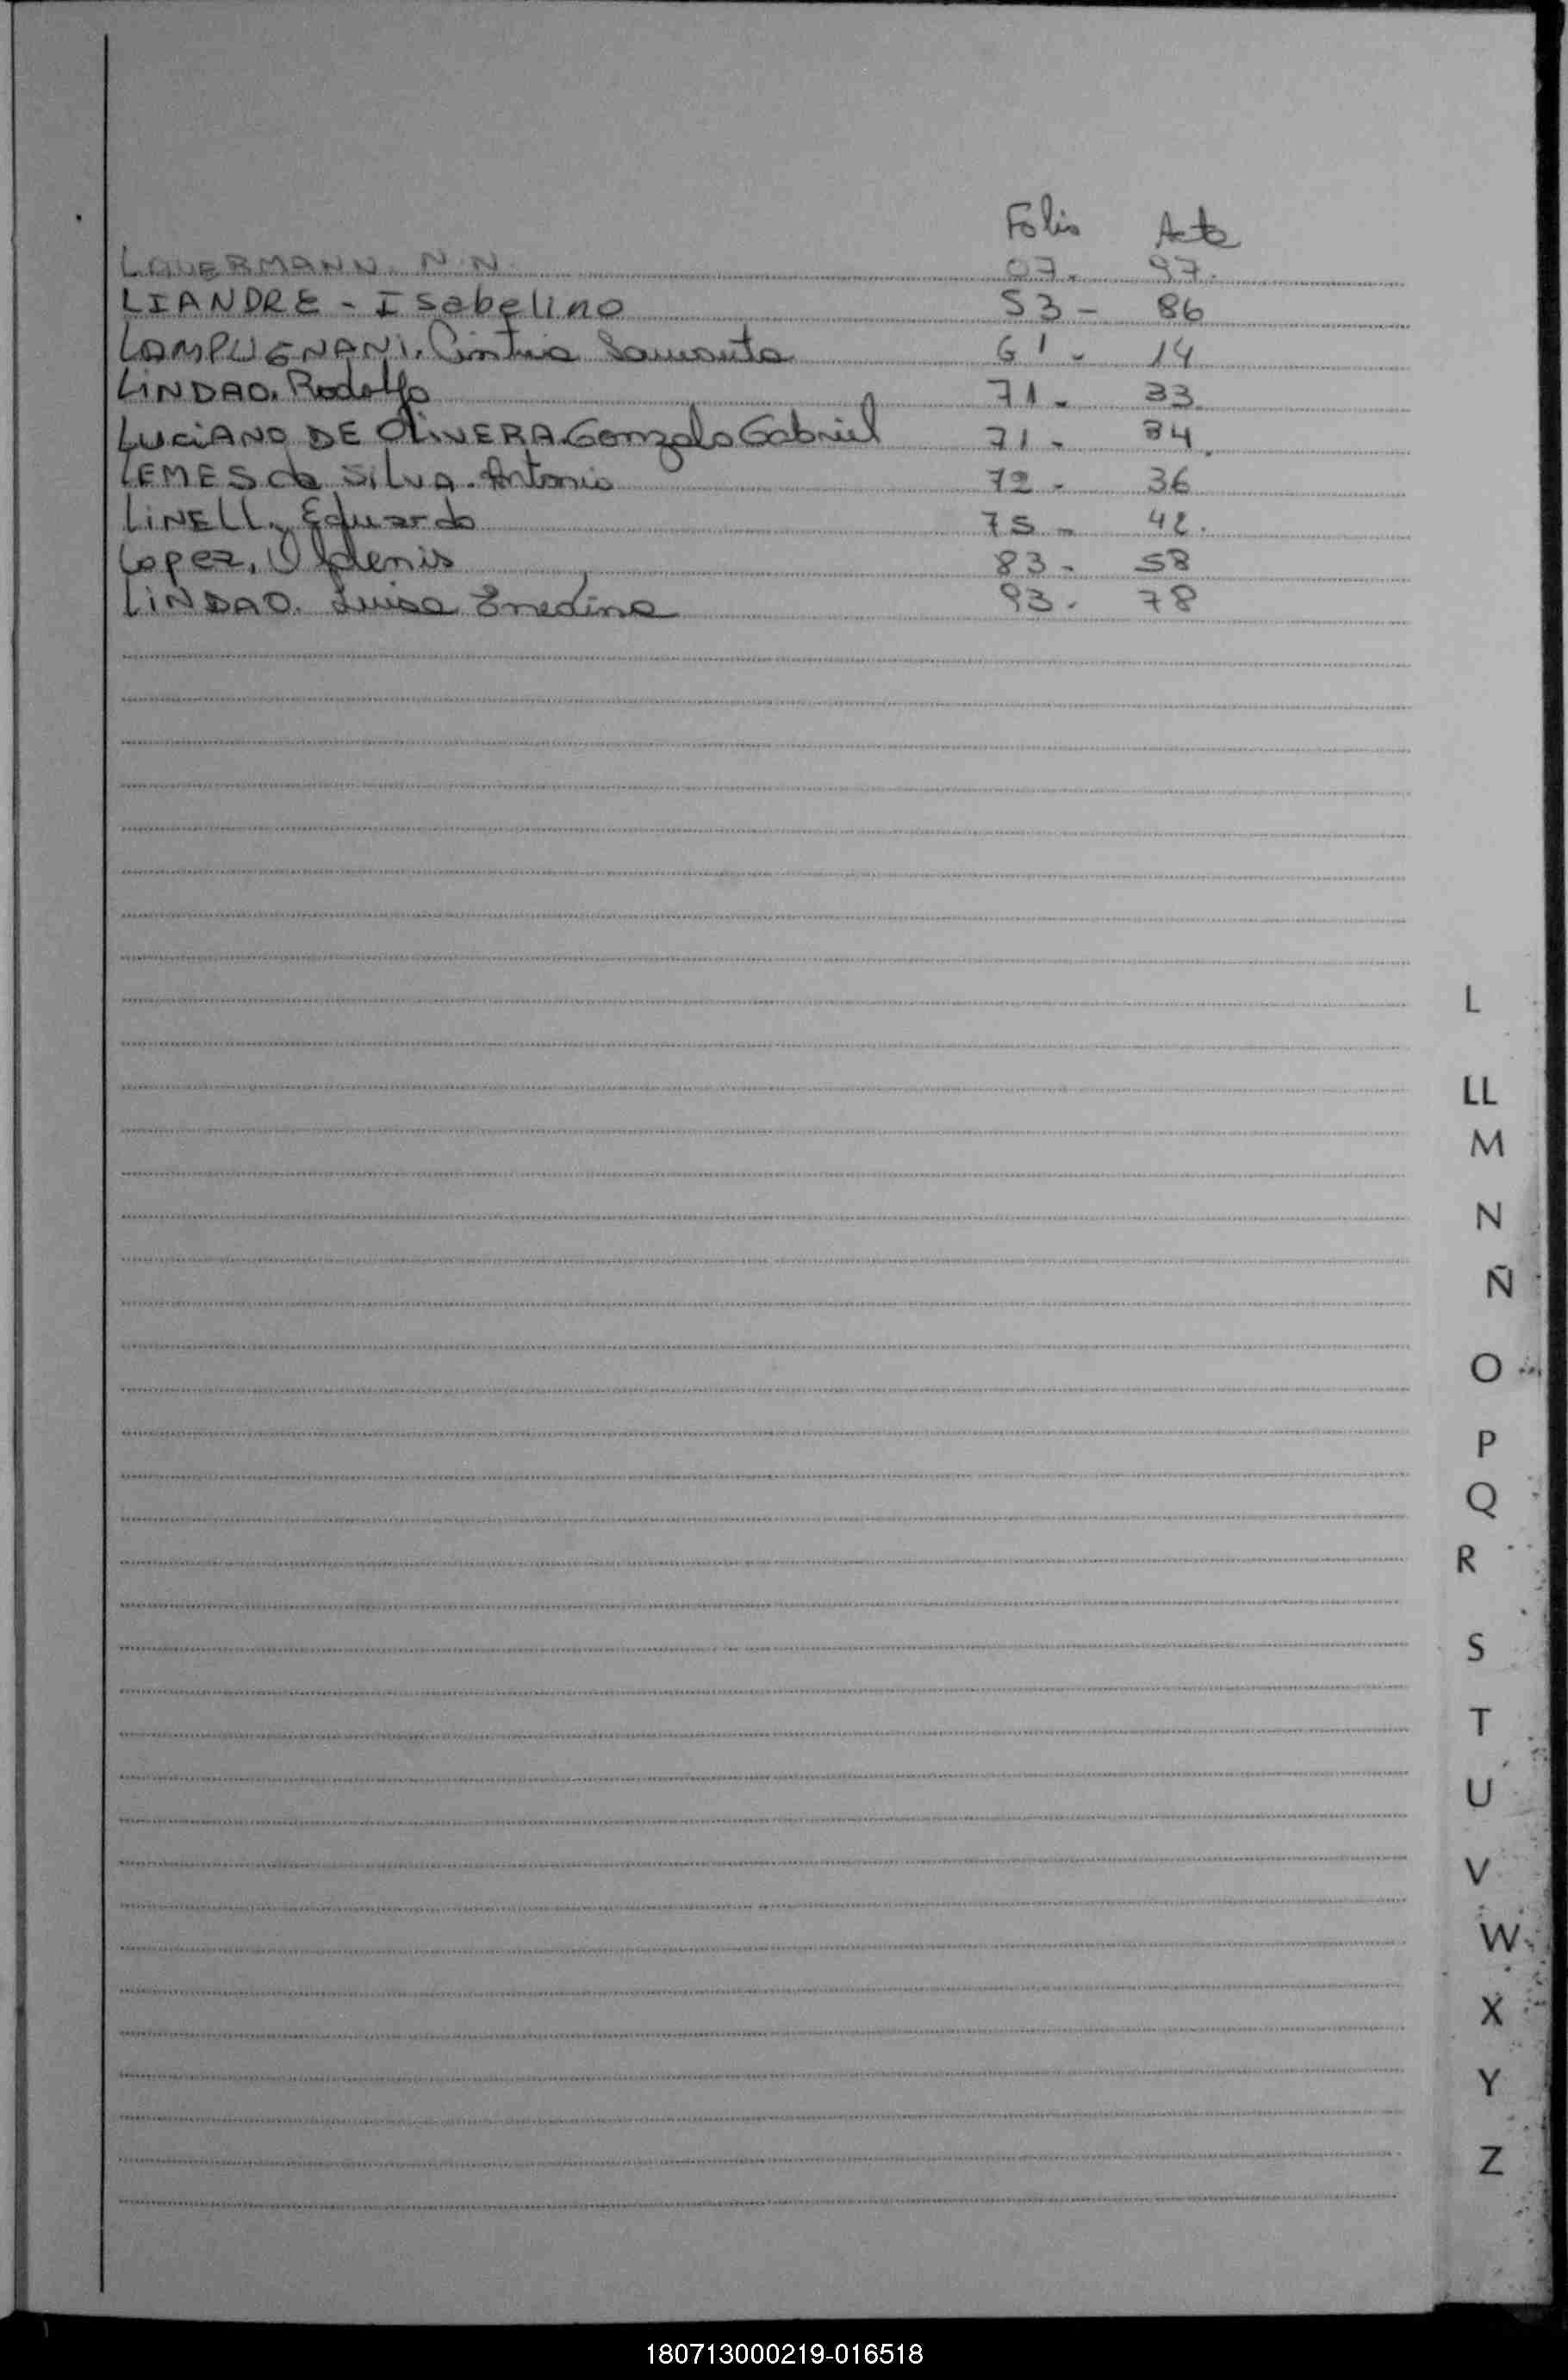 Folio Acta
LAUERMANN. N.N. 07. 97.
LIANDRE - Isabelino 53 - 86
LAMPUGNANI. Cintia 61 - 14
LINDAO. Rodolfo 71 - 33
LUCIANO DE OLIVERA. Gonzalo Gabriel 71 - 34
LEMES da SILVA. Antonio 72 - 36
LINELL, Eduardo 75 - 42.
Lopez, 83 - 58
LINDAO. Luisa Enedina 93. 78
L
LL
M
N
Ñ
O
P
Q
R
S
T
U
V
W
X
Y
Z
180713000219-016518